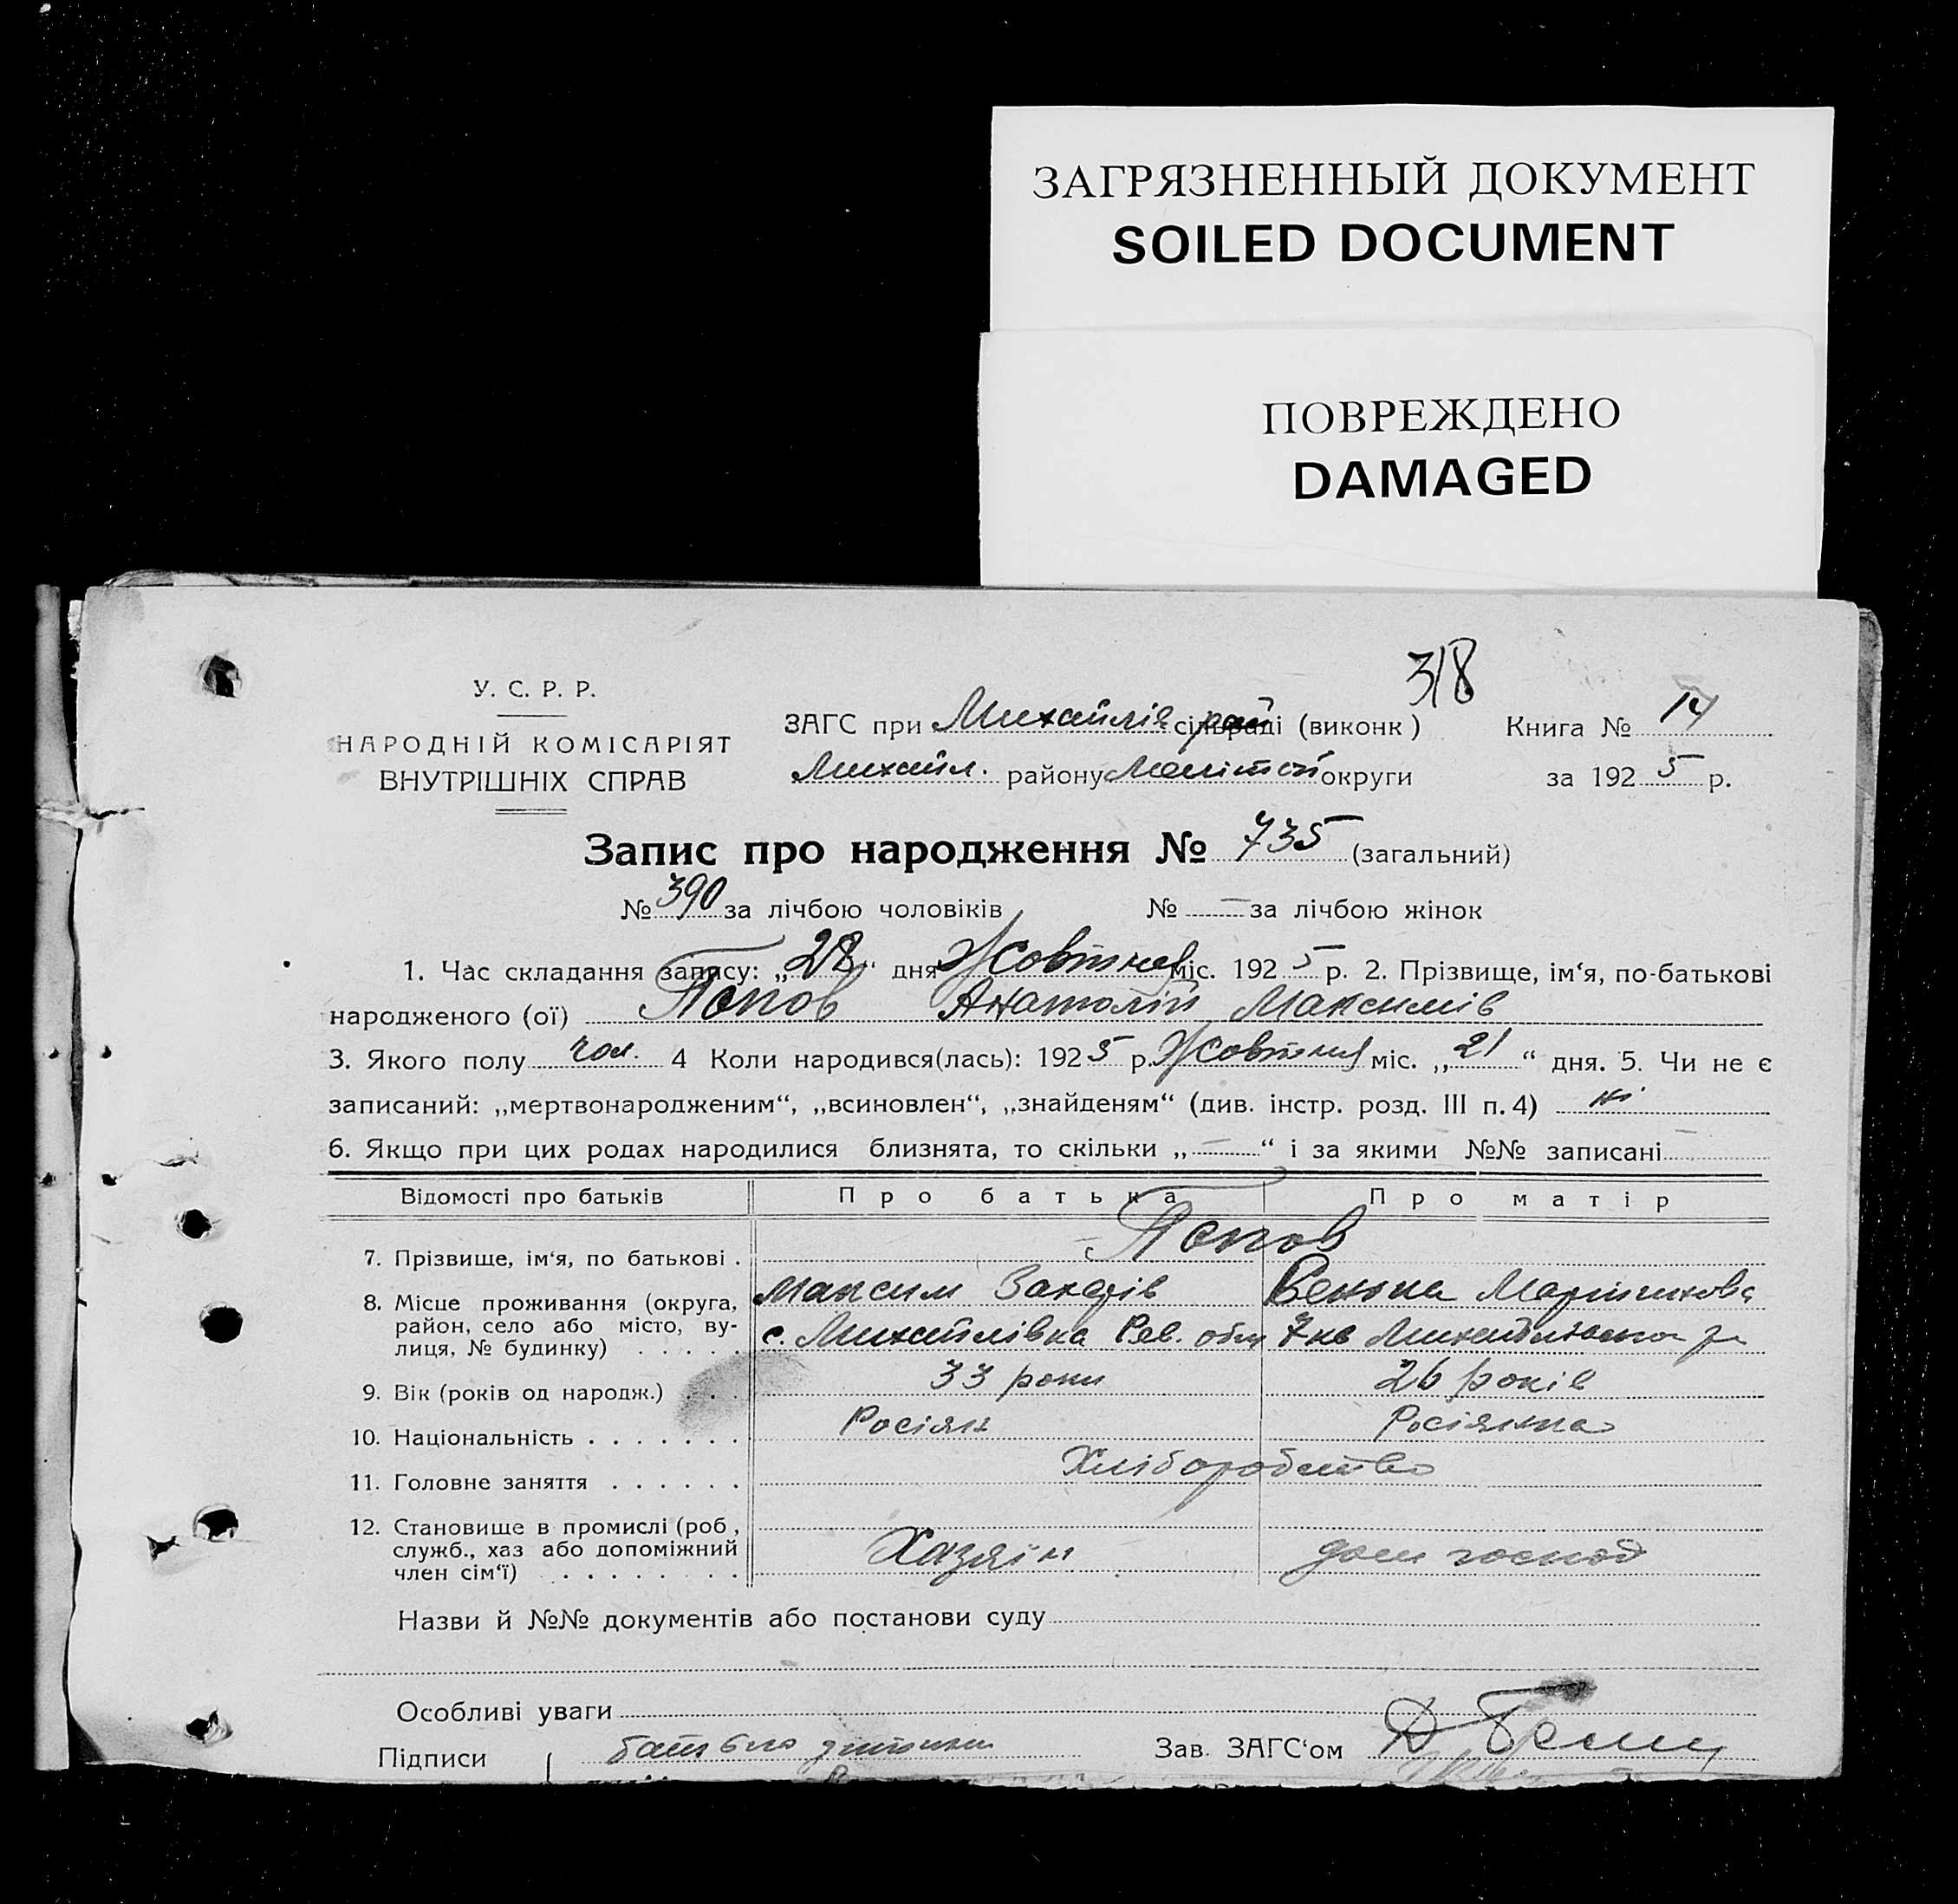 ЗАГРЯЗНЕННЫЙ ДОКУМЕНТ
SOILED DOCUMENT
ПОВРЕЖДЕНО
DAMAGED
318
У. С. Р. Р.
НАРОДНІЙ КОМІСАРІЯТ
ВНУТРІШНІХ СПРАВ
ЗАГС при Михайлів сільраді (виконк) Книга № 14
Михайл. району округи за 1925 р.
Запис про народження № 735 (загальний)
№ 390 за лічбою чоловіків № — за лічбою жінок
1. Час складання запису: „28“ дня Жовтня міс. 1925 р. 2. Прізвище, ім‘я, по-батькові
народженого (ої) Попов Анатолій Максимів
3. Якого полу чол. 4 Коли народився(лась): 1925 р. Жовтня міс. „21“ дня. 5. Чи не є
записаний: „мертвонародженим“, „всиновлен“, „знайденям“ (див. інстр. розд. III п. 4) ні
6. Якщо при цих родах народилися близнята, то скільки „—“ і за якими №№ записані —
Відомості про батьків Про батька Про матір
7. Прізвище, ім‘я, по батькові . Попов
Максим Захарів
8. Місце проживання (округа,
район, село або місто, ву-
лиця, № будинку) . . . . . с. Михайлівка
9. Вік (років од народж.) . . . 33 роки 26 років
10. Національність . . . . . . . Росіян Росіянка
11. Головне заняття . . . . . . Хліборобство
12. Становище в промислі (роб.,
служб., хаз або допоміжний
член сім‘ї) . . . . . . . . Хазяїн дом господ
Назви й №№ документів або постанови суду
Особливі уваги
Підписи батько дитини Зав. ЗАГС‘ом